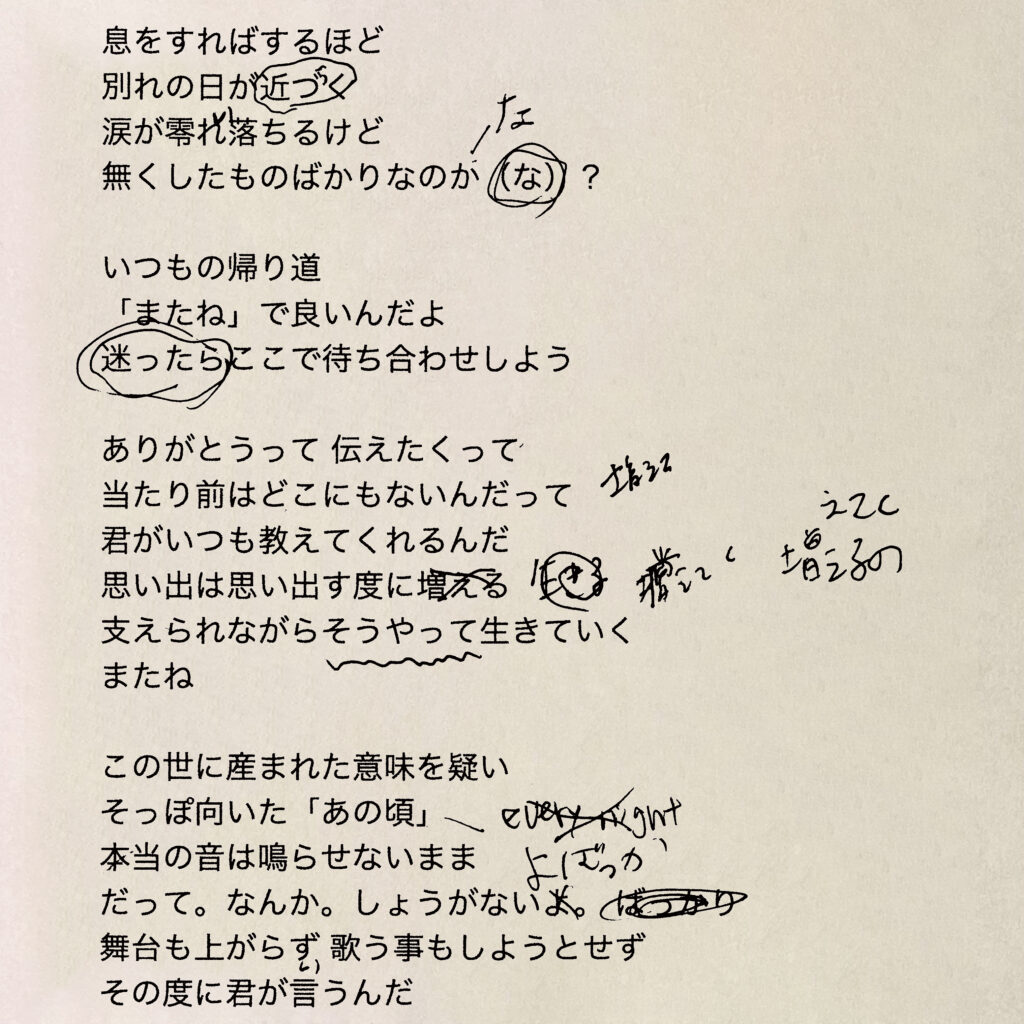 息をすればするほど
別れの日が近づく
涙が零れ落ちるけど
な
無くしたものばかりなのか(な)?
いつもの帰り道
「またね」で良いんだよ
迷ったらここで待ち合わせしよう
ありがとうって 伝えたくって
当たり前はどこにもないんだって 増えて
君がいつも教えてくれるんだ
えてく
思い出は思い出す度に増える 増えてく 増えるの
支えられながらそうやって生きていく
またね
この世に産まれた意味を疑い
そっぽ向いた「あの頃」 every night
本当の音は鳴らせないまま
よばっか
だって。なんか。しょうがないよ。 ばっかり
舞台も上がらず 歌う事もしようとせず
その度に君が言うんだ